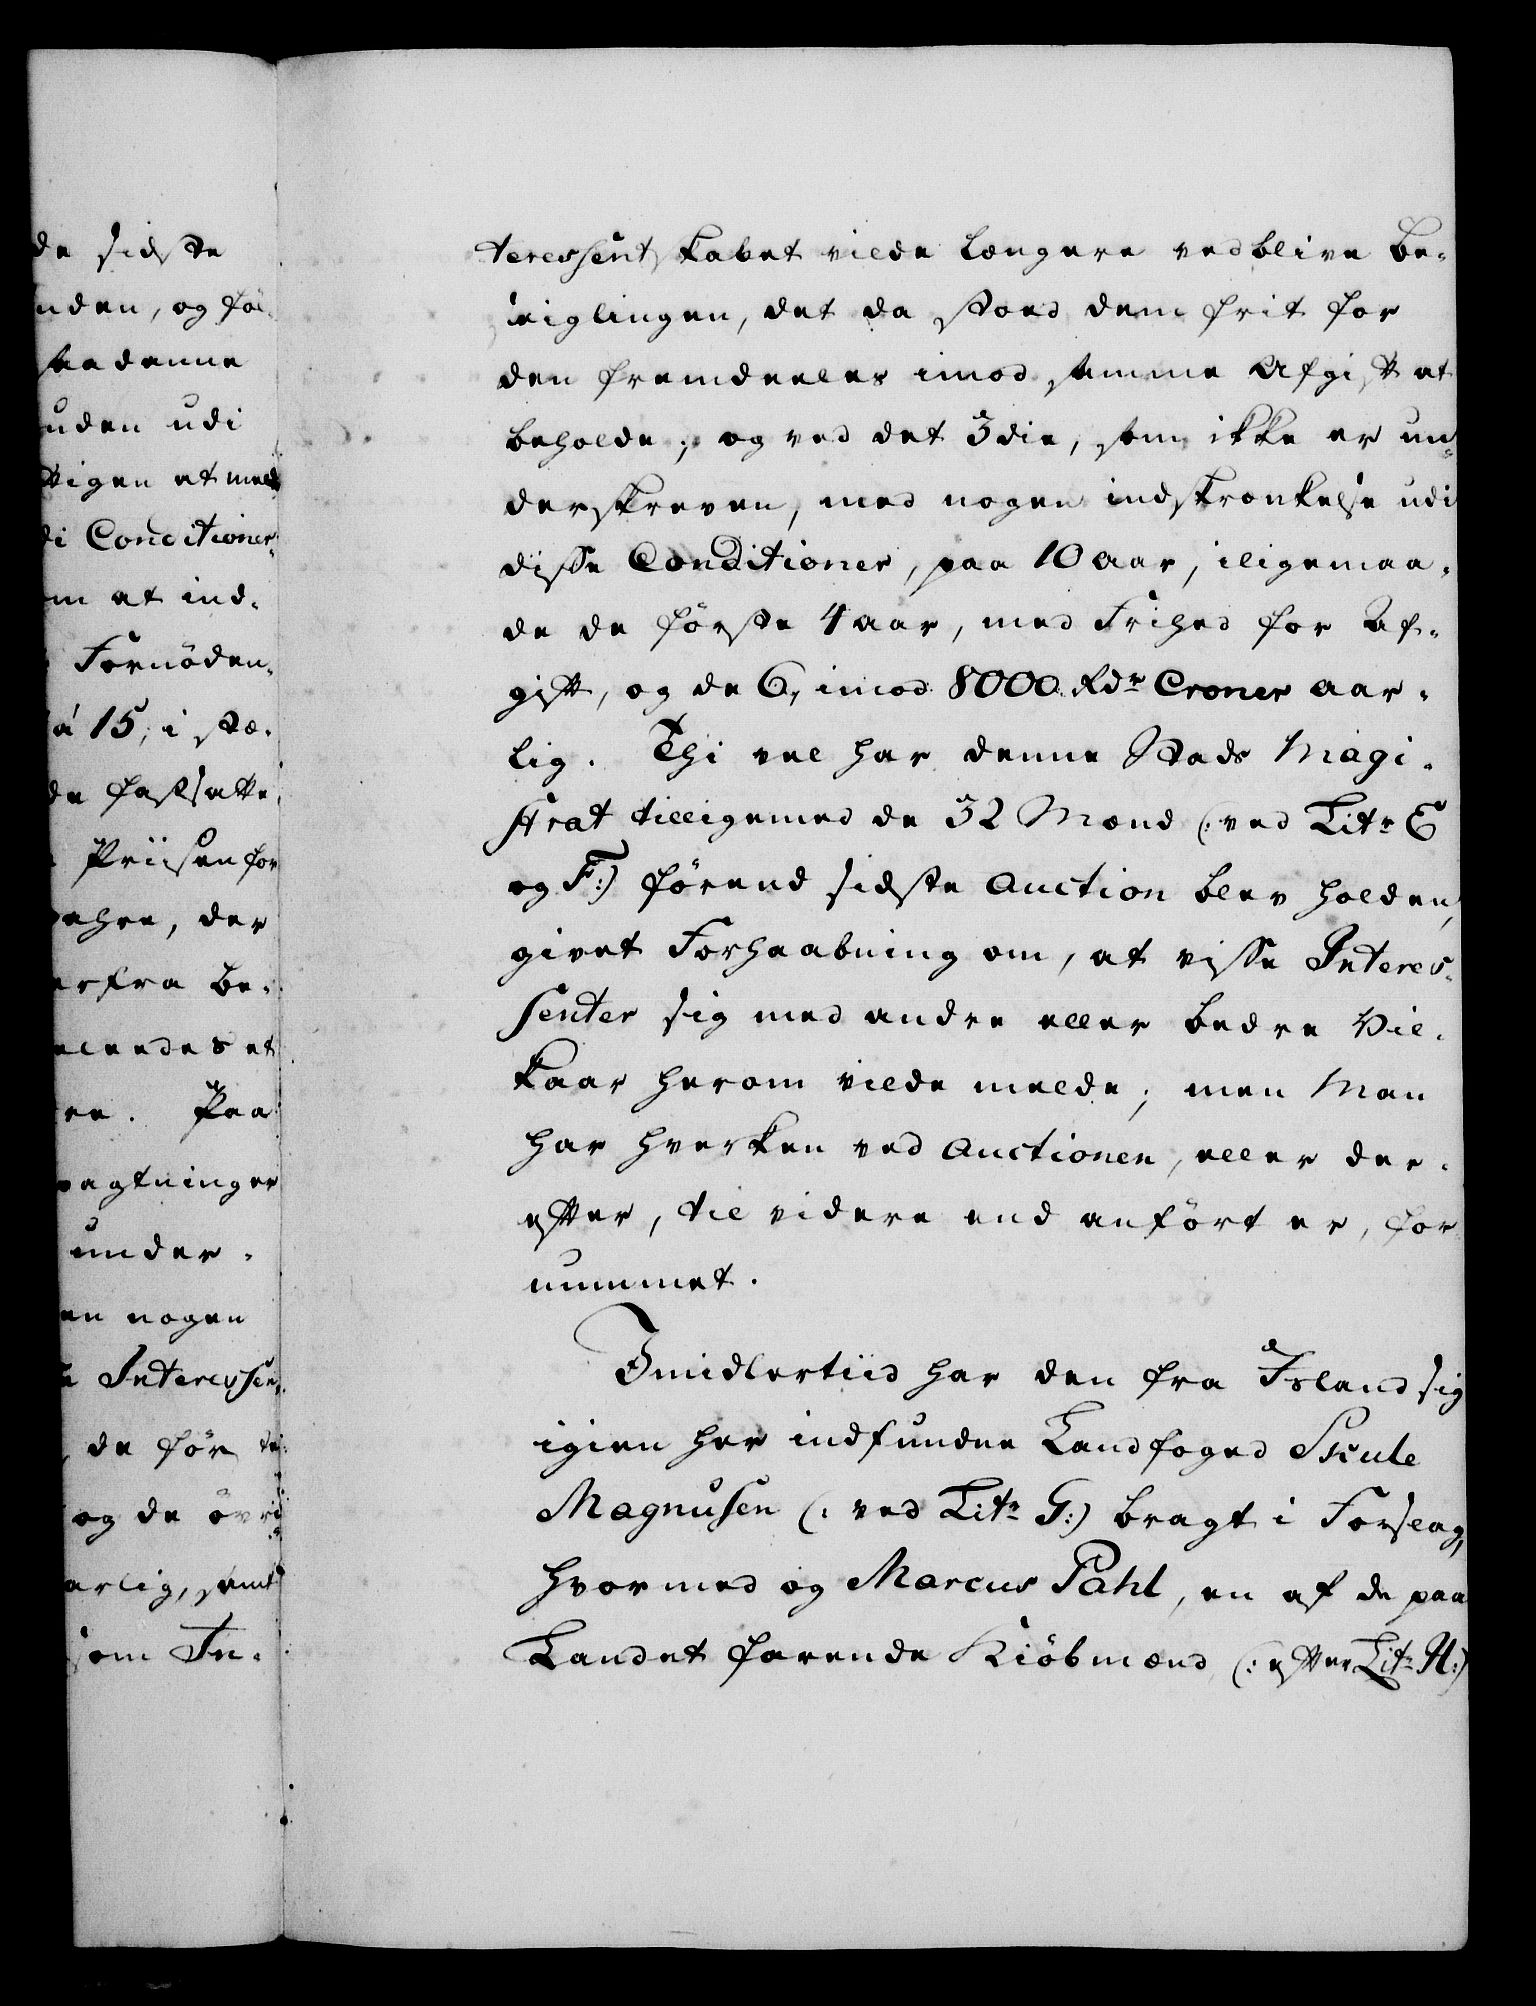 de sidste
nden, og føl-
saadenne
uden udi
ttigen at meld
di Conditioner-
m at ind-
Fornöden-
á 15, i stæ-
de fastsatte
Priisen for
ehre, der
erfra be-
eleedes et
re. Paa
pagtninger
under-
en nogen
Interessen-
, de för
og de övri
arlig, samt
som In-
teressentskabet vilde længere vedblive be-
seiglingen, det da stoed dem frit for
den fremdeeles imod samme Afgift at
beholde; og ved det 3die, som ikke er un-
derskreven, med nogen indskrænkelse udi
disse Conditioner, paa 10 aar, iligemaa-
de de förste 4 aar, med Friehed for Af-
gift, og de 6, imod 8000 Rdr Croner aar-
lig. Thi vel har denne Stads Magi-
strat tilligemed de 32 Mænd (: ved Litr E
og F:) förend sidste Auction blev holden,
givet Forhaabning om, at visse Interes-
senter sig med andre eller bedre Vil-
kaar herom vilde melde; men Man
har hverken ved Auctionen, eller der-
efter, til videre end anfört er, for-
nummet.
Imidlertiid har den fra Island sig
igien her indfundne Landfoged Skule
Magnusen (: ved Litr G:) bragt i Forslag,
hvormed og Marcus Pahl, en af de paa
Landet farende Kiöbmænd (: efter Litr H:)